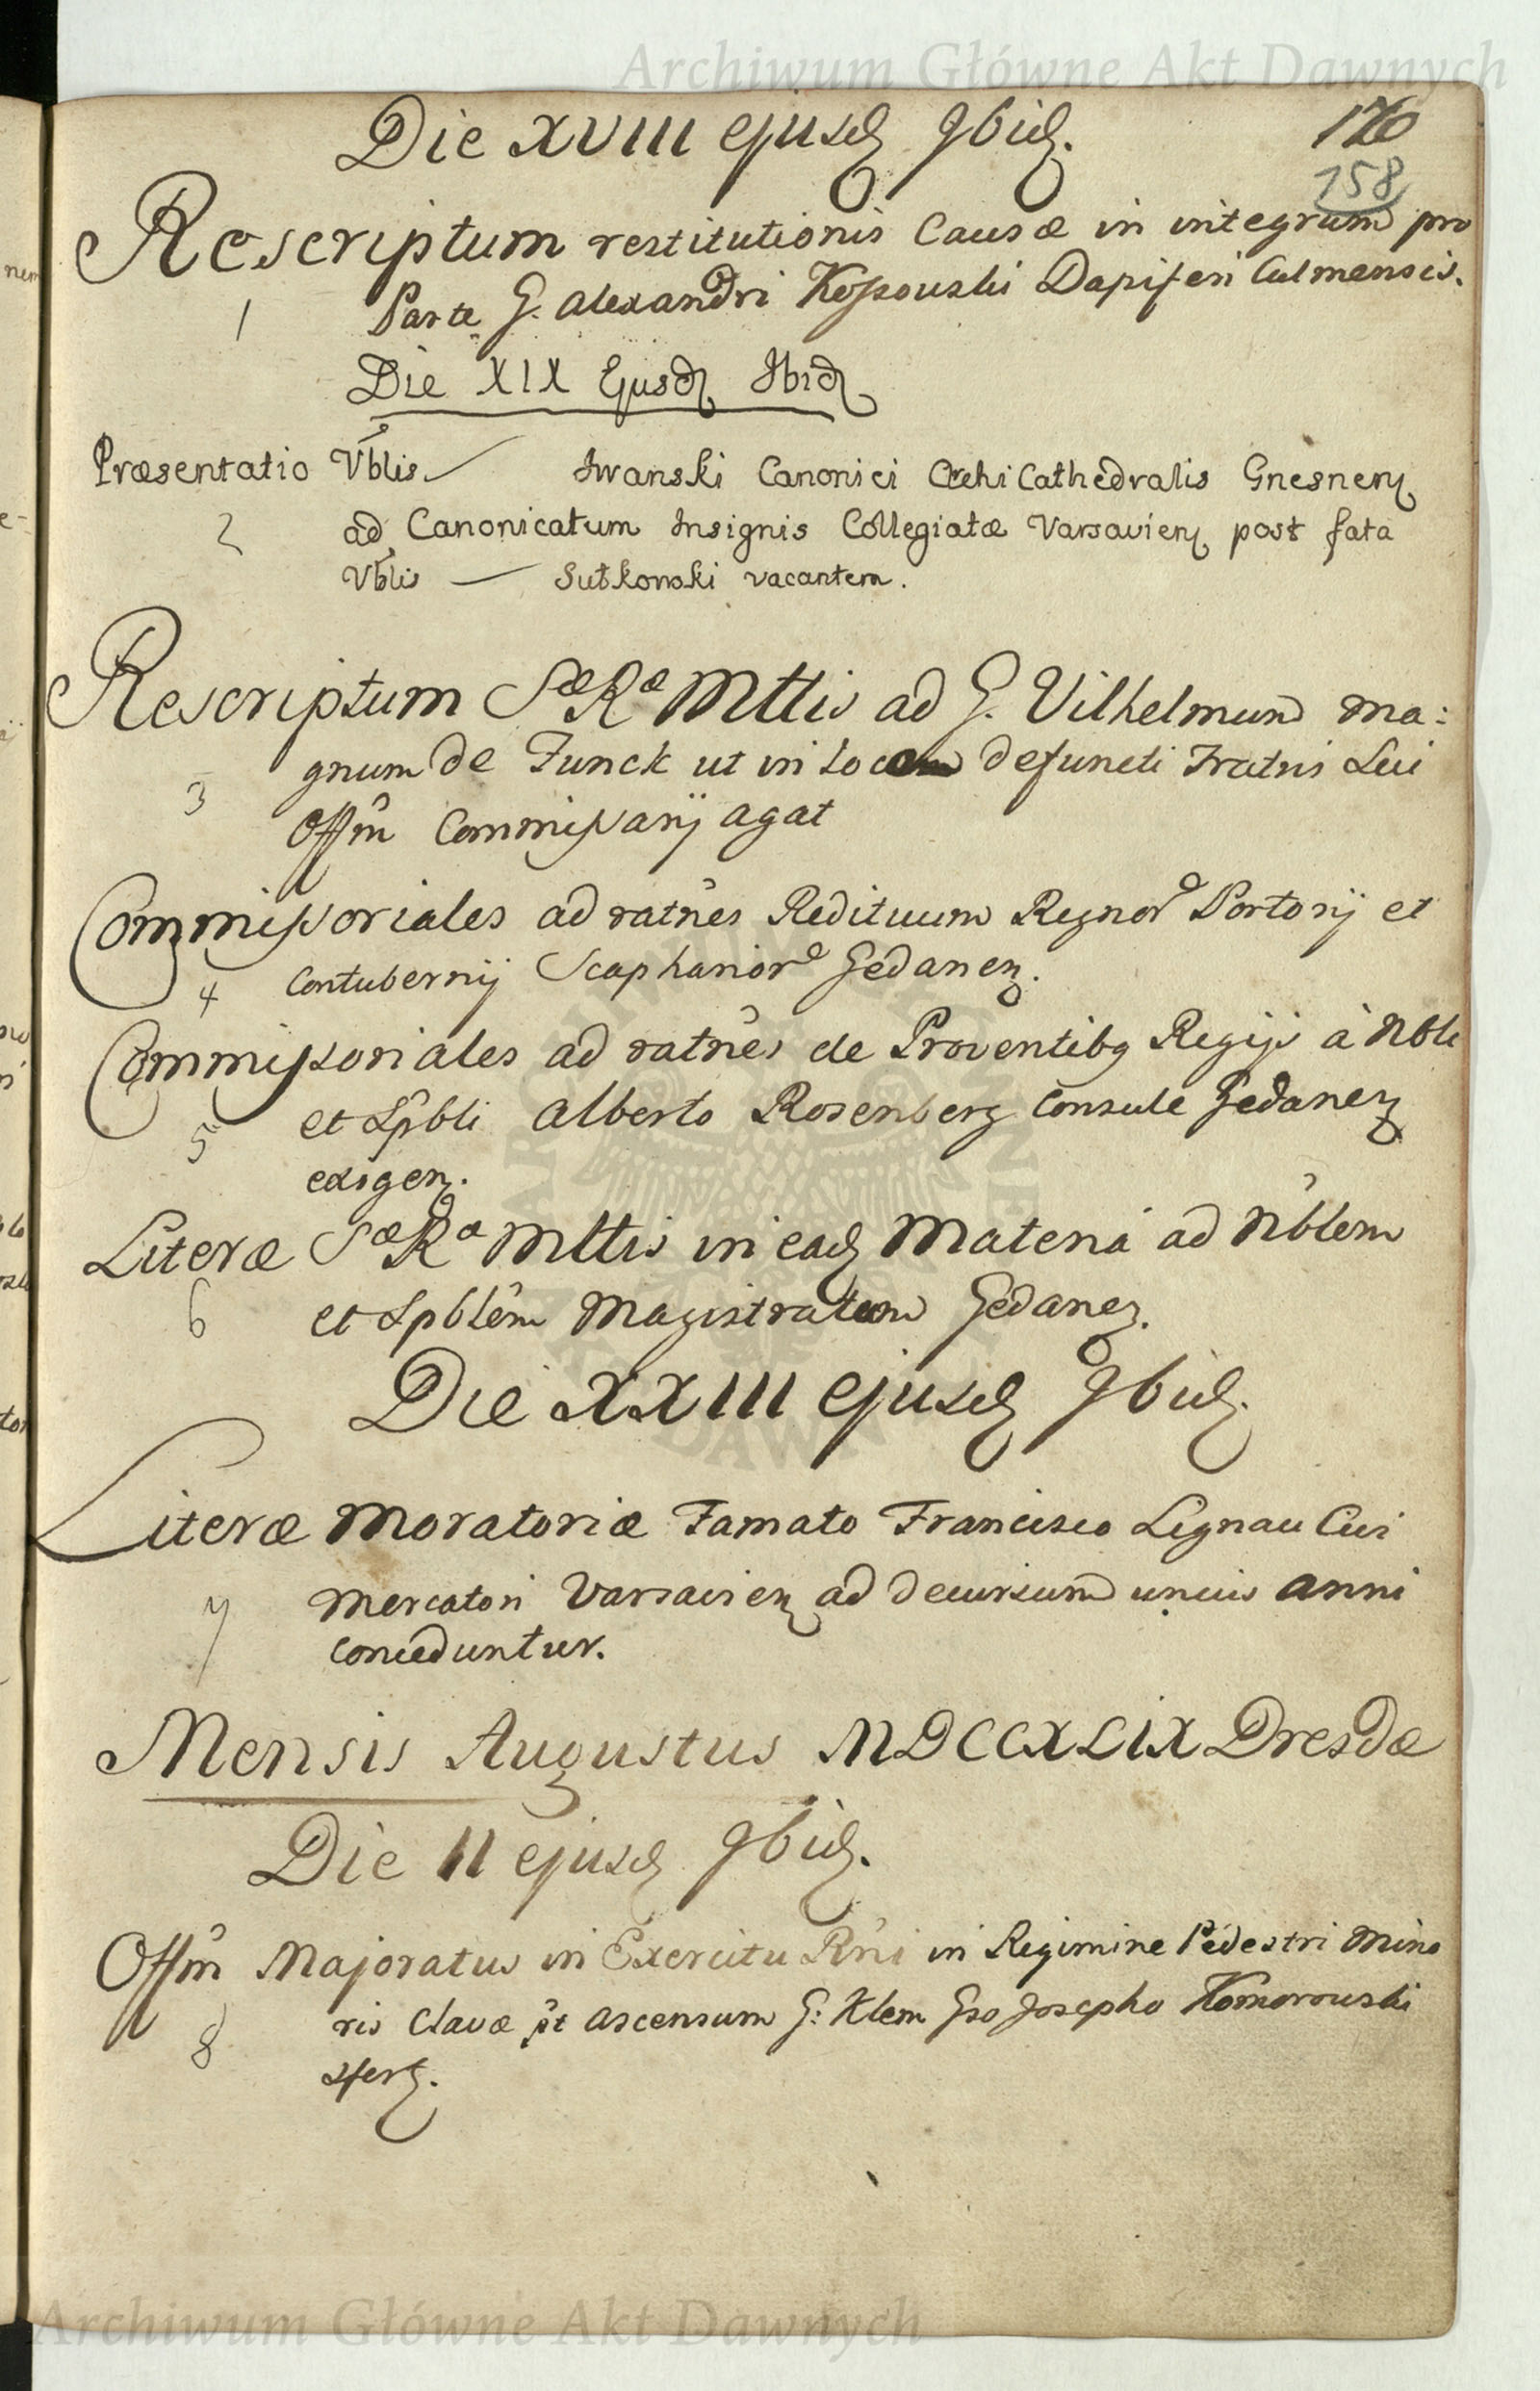 Archiwum Główne Akt Dawnych
Die XVIII ejusd Ibid.
176
158
Rescriptum restitutionis Causæ in integrum pro
1 Parte G. Alexandri Kossouski Dapiferi Culmensis.
Die XIX Ejusd Ibid
Præsentatio Vblis Iwanski Canonici ArchiCathedralis Gnesnen
2 ad Canonicatum Insignis Collegiatæ Varsavien post fata
Vblis — Sutkowski vacantem.
Rescriptum Sæ Ræ Mttis ad G. Vilhelmum Ma:
gnum de Funck ut in locum defuncti Fratris Sui
3 Offm Commissarij agat
Commissoriales ad ratnes Redituum Regnor Portorij et
4 Contubernij Scaphanior Gedanen.
Commissoriales ad ratnes de Proventibq Regijs à Nbli
et Spbli Alberto Rosenberg Consule Gedanen
5 exigen.
Literæ Sæ Ræ Mttis in ead Materiá ad Nblem
6 et Spblem Magistratum Gedanen.
Die XXIII ejusd Ibid.
Literæ Moratoriæ Famato Francisco Lignau Civi
7 Mercatori Varsavien ad decursum unius anni
conceduntur.
Mensis Augustus MDCCXLIX Dresdæ
Die 11 ejusd Ibid.
Offm Majoratus in Exercitu Rni in Regimine Pedestri Mino
ris Clavæ pt ascensum G: Klem Gso Josepho Komorouski
8 sfert.
Archiwum Główne Akt Dawnych